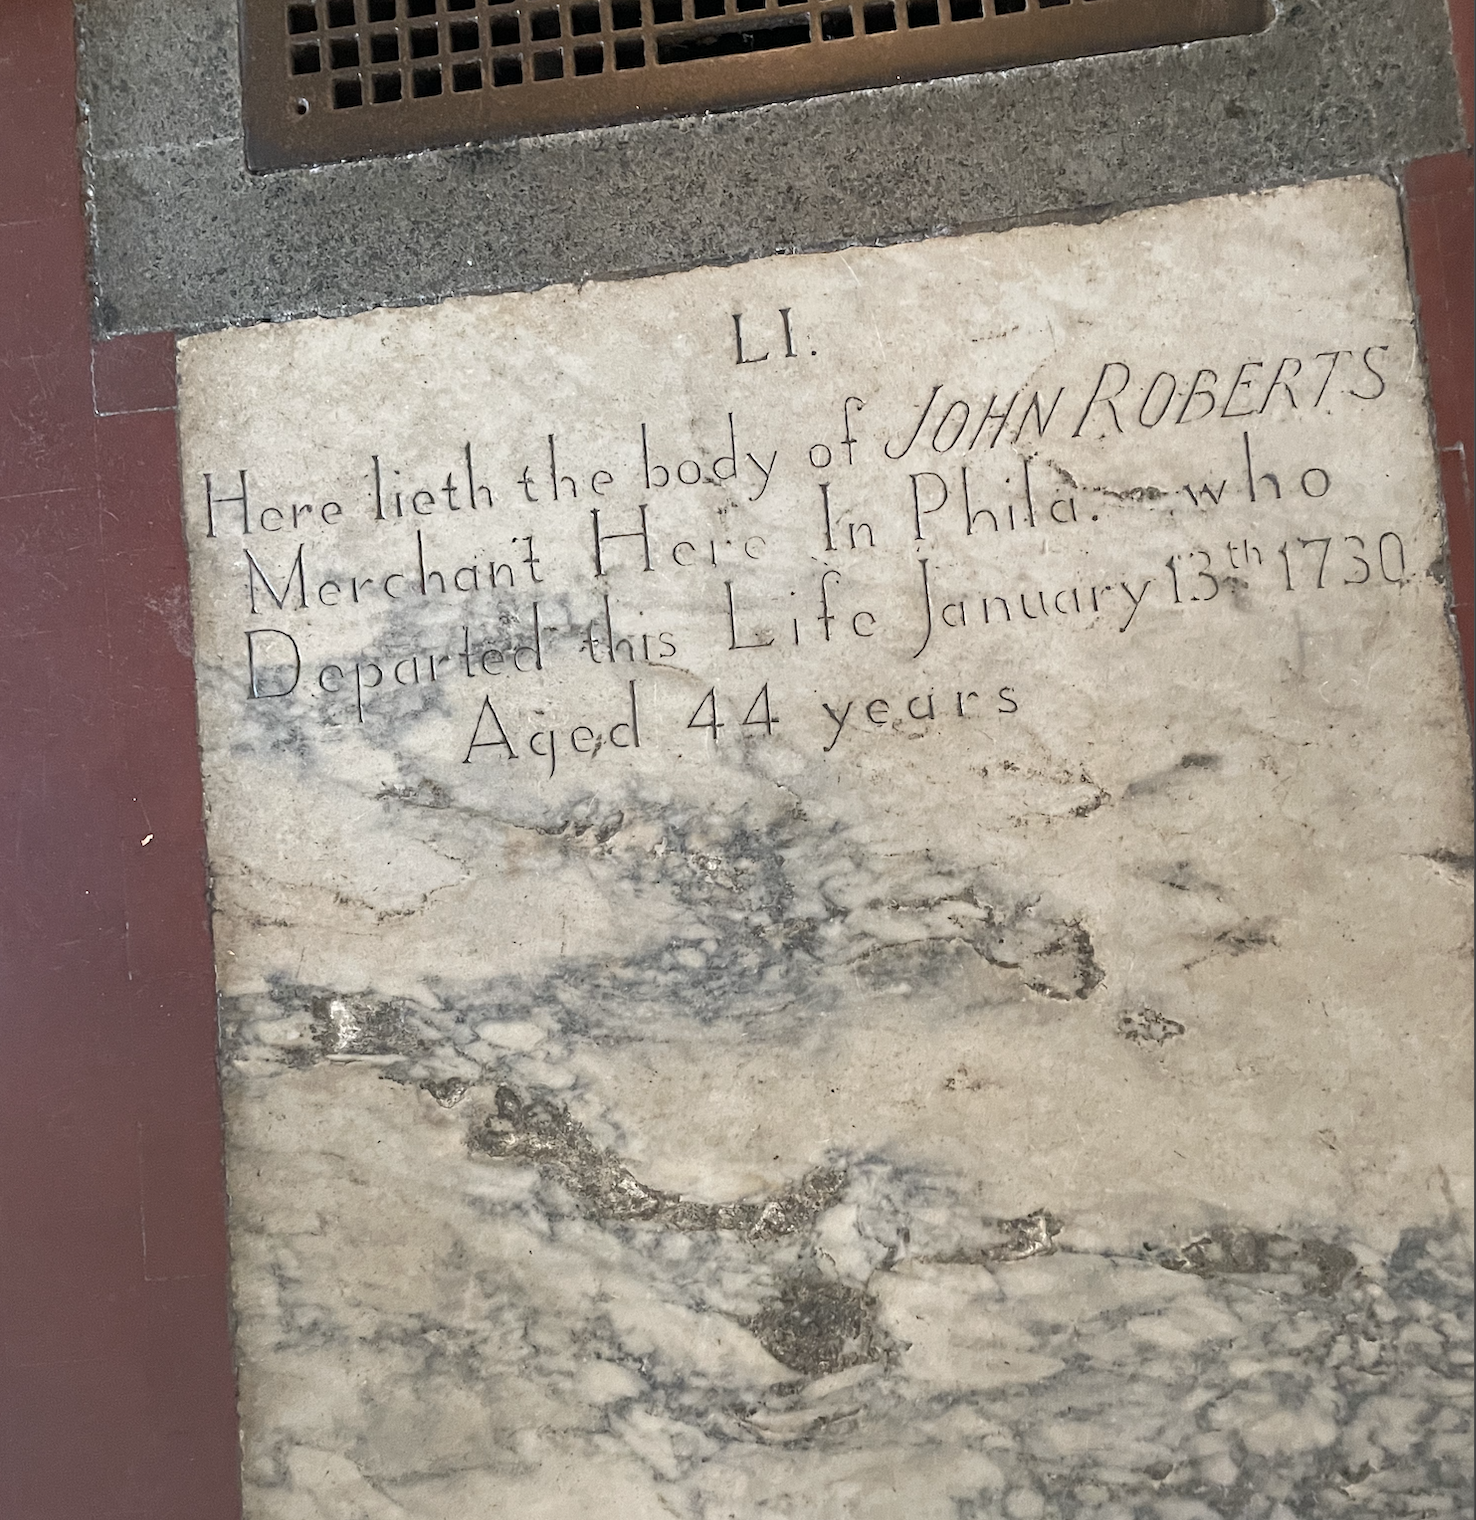 LI.
Here lieth the body of JOHN ROBERTS
Merchant Here In Phila. who
Departed this Life January 13th 1730
Aged 44 years